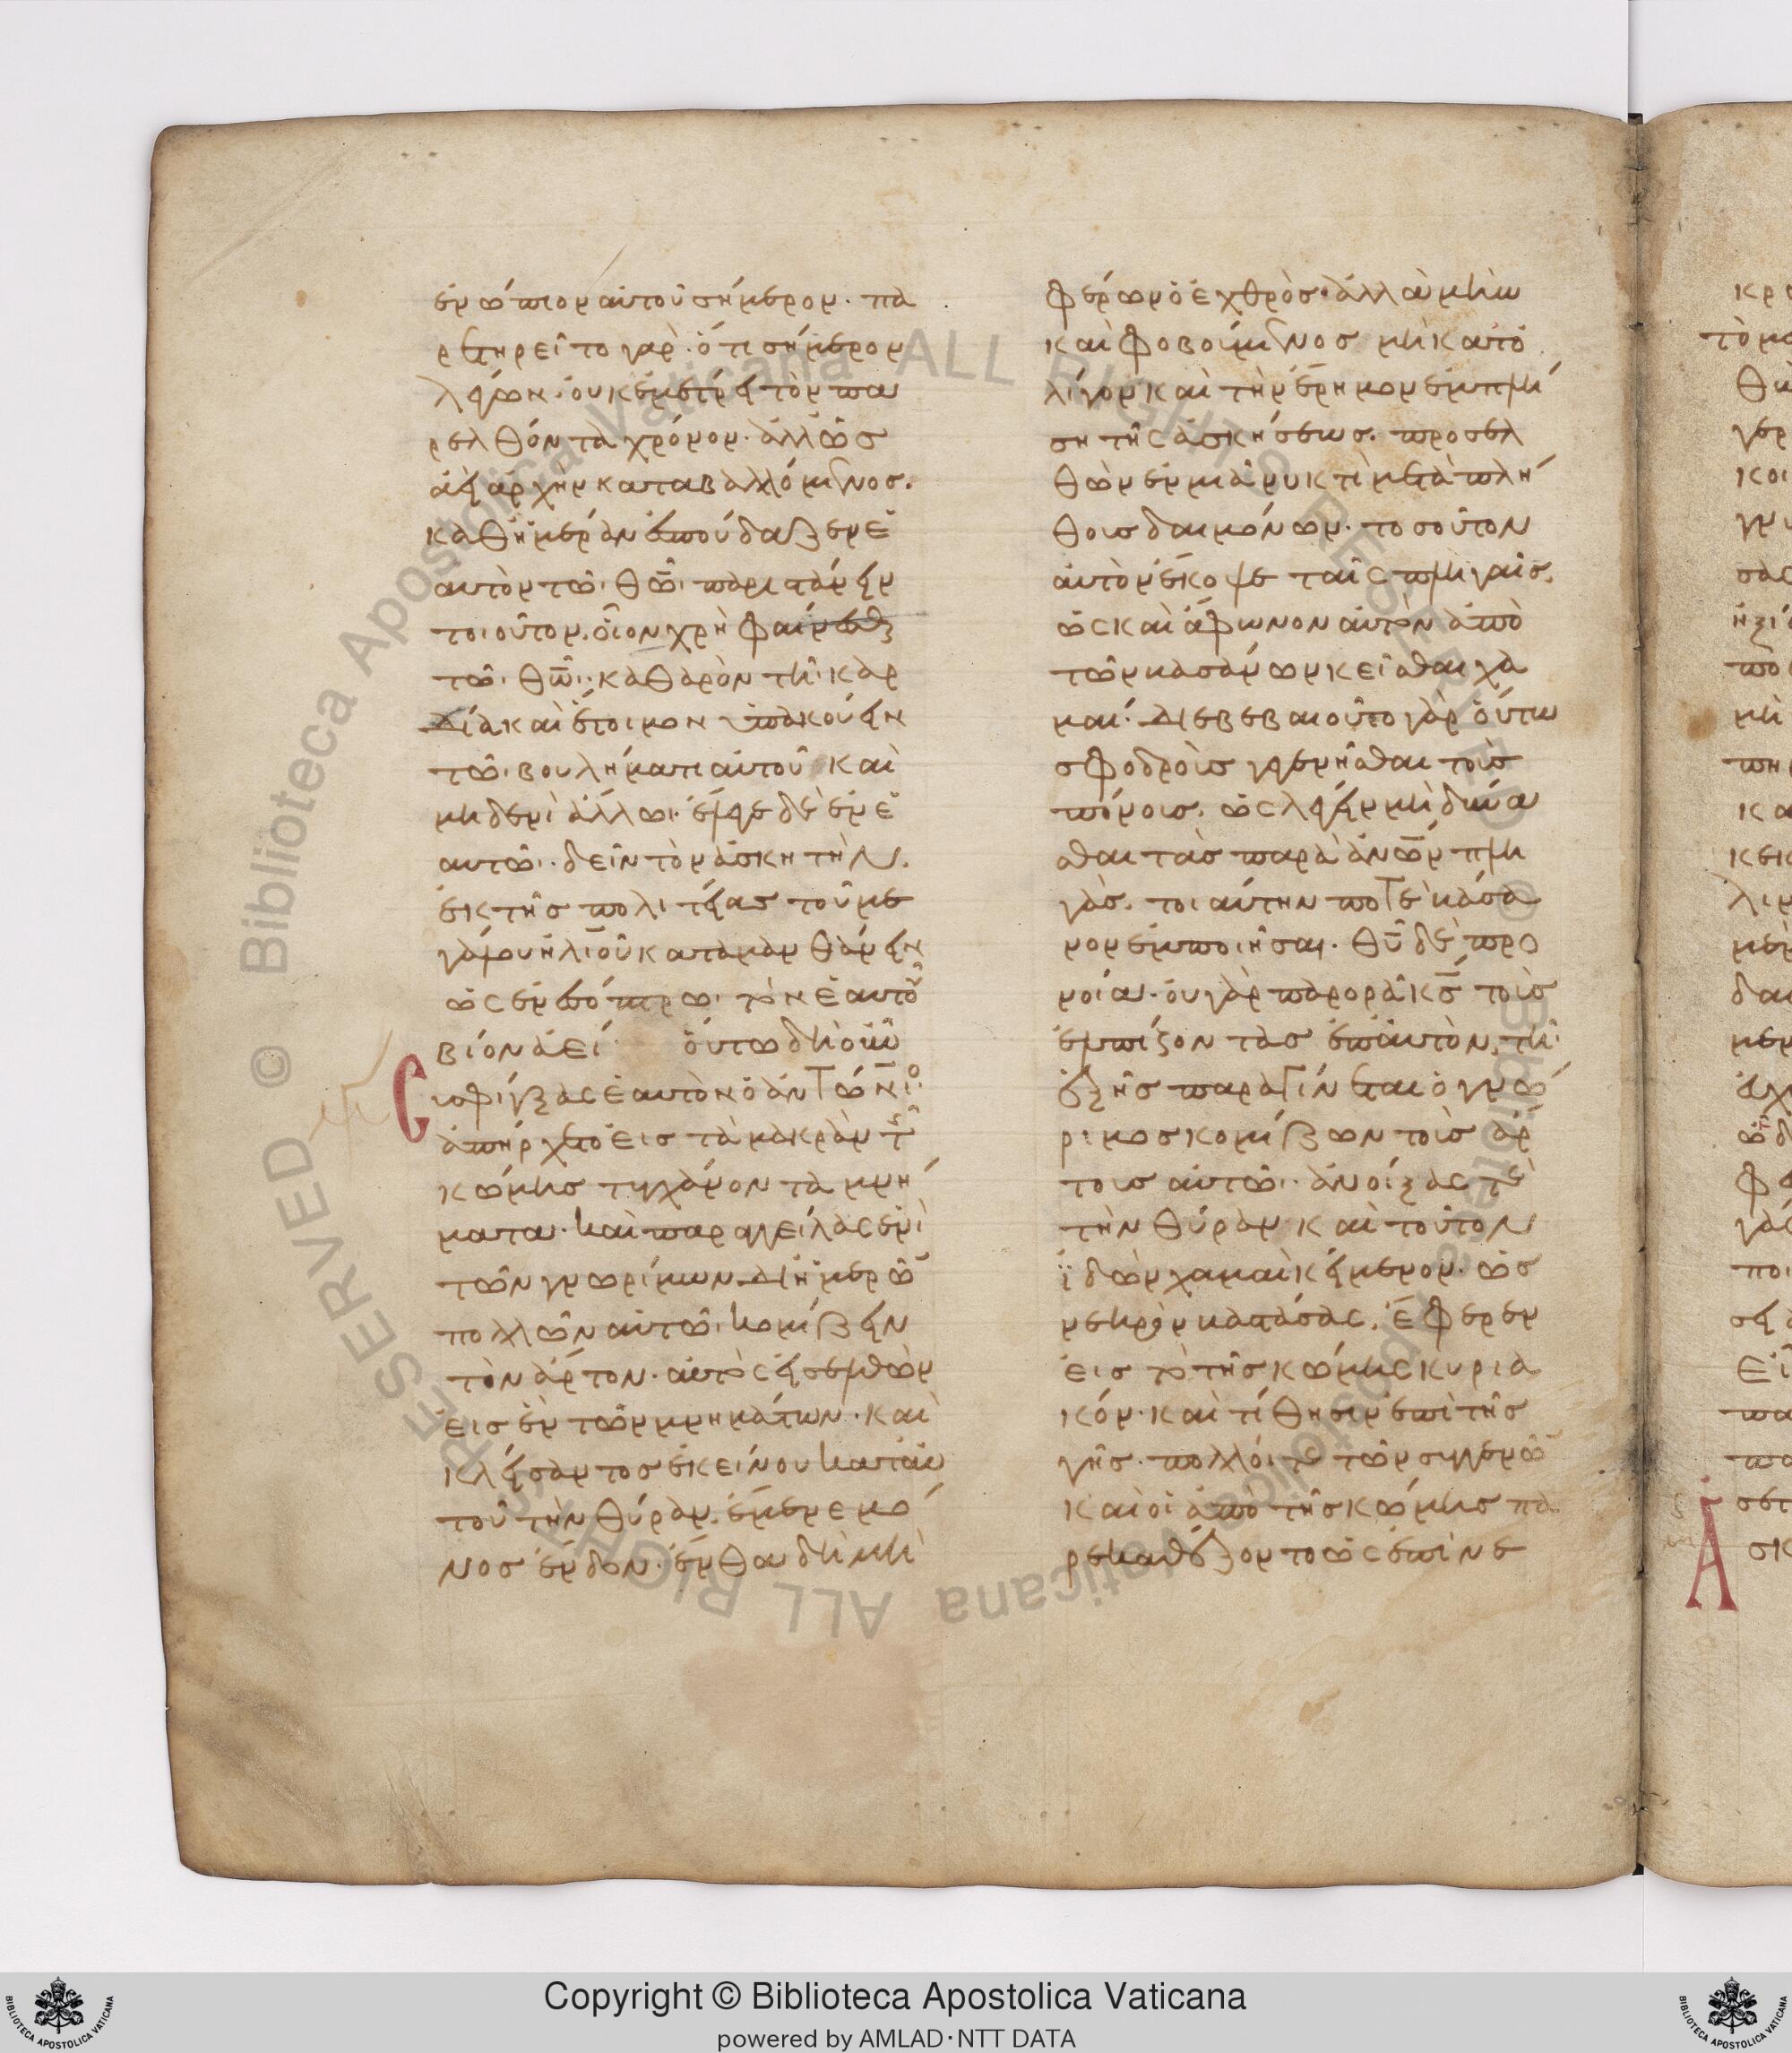 ἐνώπιον αὐτοῦ σήμερον· πα
ρετηρεῖτο γὰρ· ὅτι σήμερον
λέγων· οὐκ ἐμέτρει τὸν πα
ρελθόντα χρόνον· ἀλλ' ὡς
ἀεὶ ἀρχὴν καταβαλλόμενος.
καθ' ἡμέραν ἐσπούδαζεν ἑ
αυτὸν τῶι θῶι παριστάνειν
τοιοῦτον. οἷον χρὴ φαίνεσθαι
τῶι θῶι· καθαρὸν τῆι καρ
δία καὶ ἕτοιμον ὑπακούειν
τῶι βουλήματι αὐτοῦ καὶ
μηδενὶ ἄλλωι· ἔλεγε δὲ ἐν ἑ
αυτῶι· δεῖν τὸν ἀσκητὴν.
ἐκ τῆς πολιτείας τοῦ με
γάλου ἠλιοῦ καταμανθάνειν
ὡς ἐν ἐσόπτρωι τὸν ἑαυτοῦ
βίον ἀεί οὕτω δὴ οὖν
συσφίγξας ἑαυτὸν ὁ ἀντώνιο
ἀπήρχετο εἰς τὰ μακρὰν τῆς
κώμης τυγχάνοντα μνή
ματα· καὶ παραγγείλας ἑνὶ
τῶν γνωρίμων δι' ἡμερῶ
πολλῶν αὐτῶι κομίζειν
τὸν ἄρτον· αὐτὸς εἰσελθὼν
εἰς ἓν τῶν μνημάτων· καὶ
κλείσαντος ἐκείνου κατ' αὐ
τοῦ τὴν θύραν. ἔμενε μό
νος ἔνδον· ἔνθα δὴ μὴ
φέρων ὁ ἐχθρὸς· ἀλλὰ μὴν
καὶ φοβούμενος μὴ κατ' ὀ
λίγον καὶ τὴν ἔρημον ἐμπλή
ση τῆς ἀσκήσεως. προσελ
θὼν ἐν μιᾶ νυκτὶ μετὰ πλή
θους δαιμόνων· τοσοῦτον
αὐτὸν ἔκοψε ταῖς πληγαῖς.
ὡς καὶ ἄφωνον αὐτὸν ἀπὸ
τῶν βασάνων κεῖσθαι χα
μαί· διεβεβαιοῦτο γὰρ οὕτω
σφοδροὺς γεγενῆσθαι τοὺς
πόνους. ὡς λέγειν μὴ δύνα
σθαι τὰς παρὰ ἀνῶν πλη
γὰς. τοιαύτην ποτὲ βάσα
νον ἐμποιῆσαι. θῦ δὲ προ
νοία· οὐ γὰρ παρορᾶ κς τοὺς
ἐλπίζοντας ἐπ' αὐτὸν. τῆι
ἑξῆς παραγίνεται ὁ γνώ
ριμος κομίζων τοὺς ἄρ
τους αὐτῶι· ἀνοίξας τὲ
τὴν θύραν καὶ τοῦτον
ἰδὼν χαμαὶ κείμενον· ὡς
νεκρὸν βαστάσας. ἔφερεν
εἰς τὸ τῆς κώμης κυρια
κόν· καὶ τίθησιν ἐπὶ τῆς
γῆς· πολλοί τε τῶν συγγενῶ
καὶ οἱ ἀπὸ τῆς κώμης πα
ρεκαθέζοντο ὡς ἐπὶ νε
Copyright © Biblioteca Apostolica Vaticana
powered by AMLAD·NTT DATA